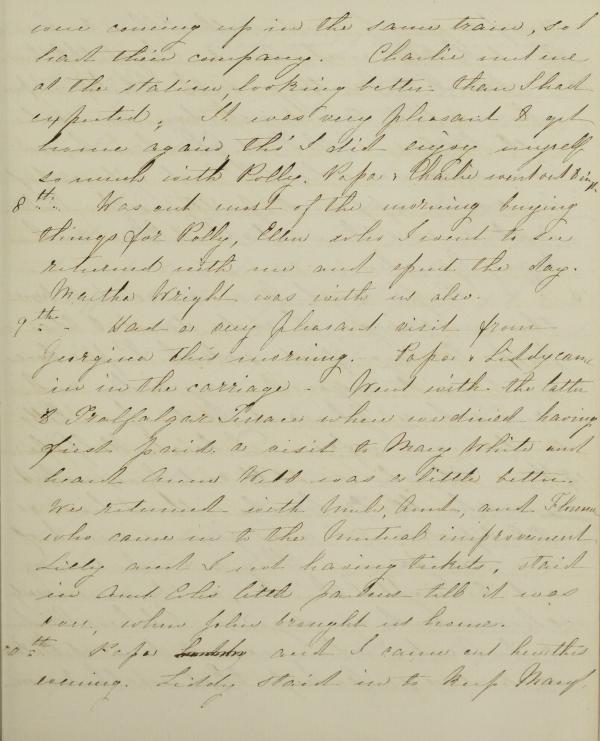 were coming up in the same train, so I
had their company. Charlie met me
at the station, looking better than I had
expected. It was very pleasant to get
home again, tho' I did enjoy myself
so much with Polly. Papa & Charlie went out
8th. Was out most of the morning buying
things for Polly, Ellen who I went to see
returned with me and spent the day.
Martha Wright was with us also.
9th - Had a very pleasant visit from
Georgina this morning. Papa & Liddy came
in in the carriage - Went with the latter
to Traffalgar Square where we dined having
first paid a visit to Mary White and
heard Anna Webb was a little better.
We returned with Uncle, Aunt, and
who came in to the Mutual improvement
Liddy and I not having tickets, staid
in Aunt little parlour till it was
over, when John brought us home.
10th Papa and I came out here this
evening. Liddy staid in to keep Mary